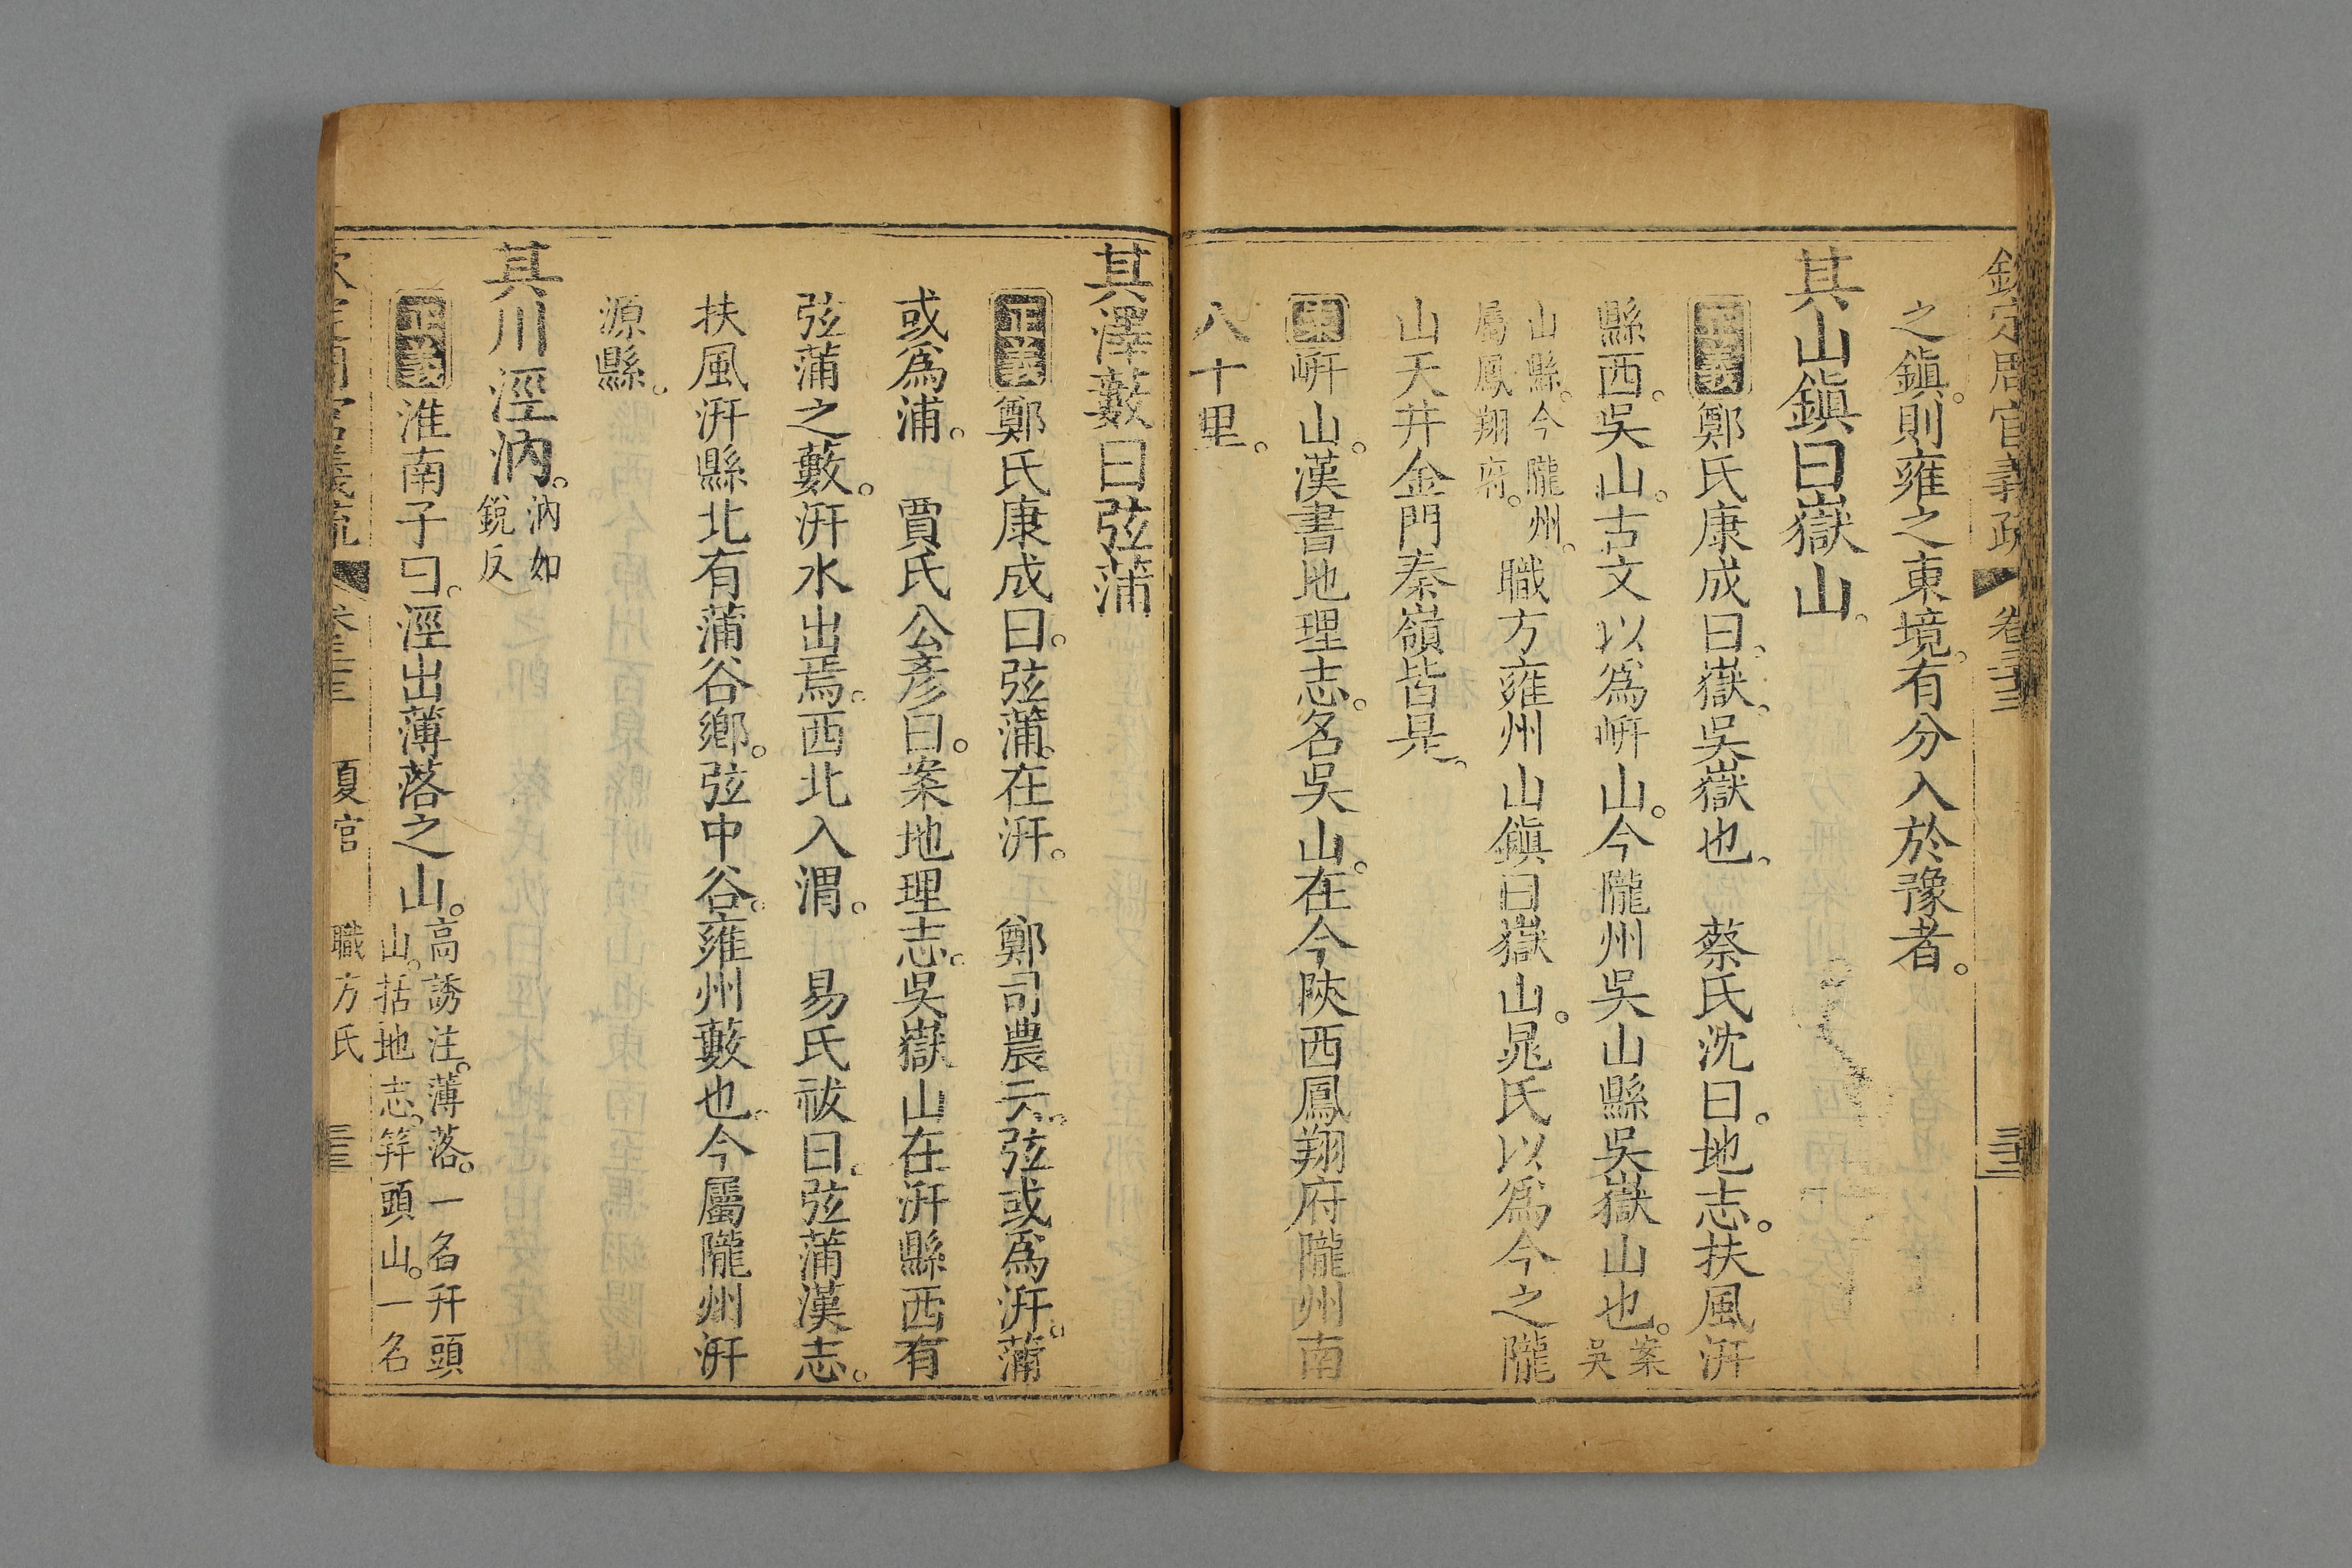 欽定周官義疏 卷三十三
之鎭。則雍之東境。有分入於豫者。
其山鎭曰嶽山。
正義鄭氏康成曰。嶽。吳嶽也。 蔡氏沈曰。地志。扶風汧
縣西。吳山。古文以爲岍山。今隴州吳山縣吳嶽山也。案吳
山縣。今隴州。屬鳳翔府。職方雍州山鎭曰嶽山。晁氏以爲今之隴
山天井金門秦嶺皆是。
案岍山。漢書地理志。名吳山。在今陝西鳳翔府隴州南
八十里。
其澤藪曰弦蒲
正義鄭氏康成曰。弦蒲。在汧。 鄭司農云。弦或爲汧。蒲
或爲浦。 賈氏公彥曰。案地理志。吳嶽山在汧縣西有
弦蒲之藪。汧水出焉。西北入渭。 易氏祓曰。弦蒲漢志。
扶風汧縣北有蒲谷鄉。弦中谷。雍州藪也。今屬隴州汧
源縣。
其川涇汭。汭如銳反
正義淮南子曰。涇出薄落之山。高誘注。薄落。一名幵頭山。括地志。筓頭山。一名
卷三十三 夏官 職方氏